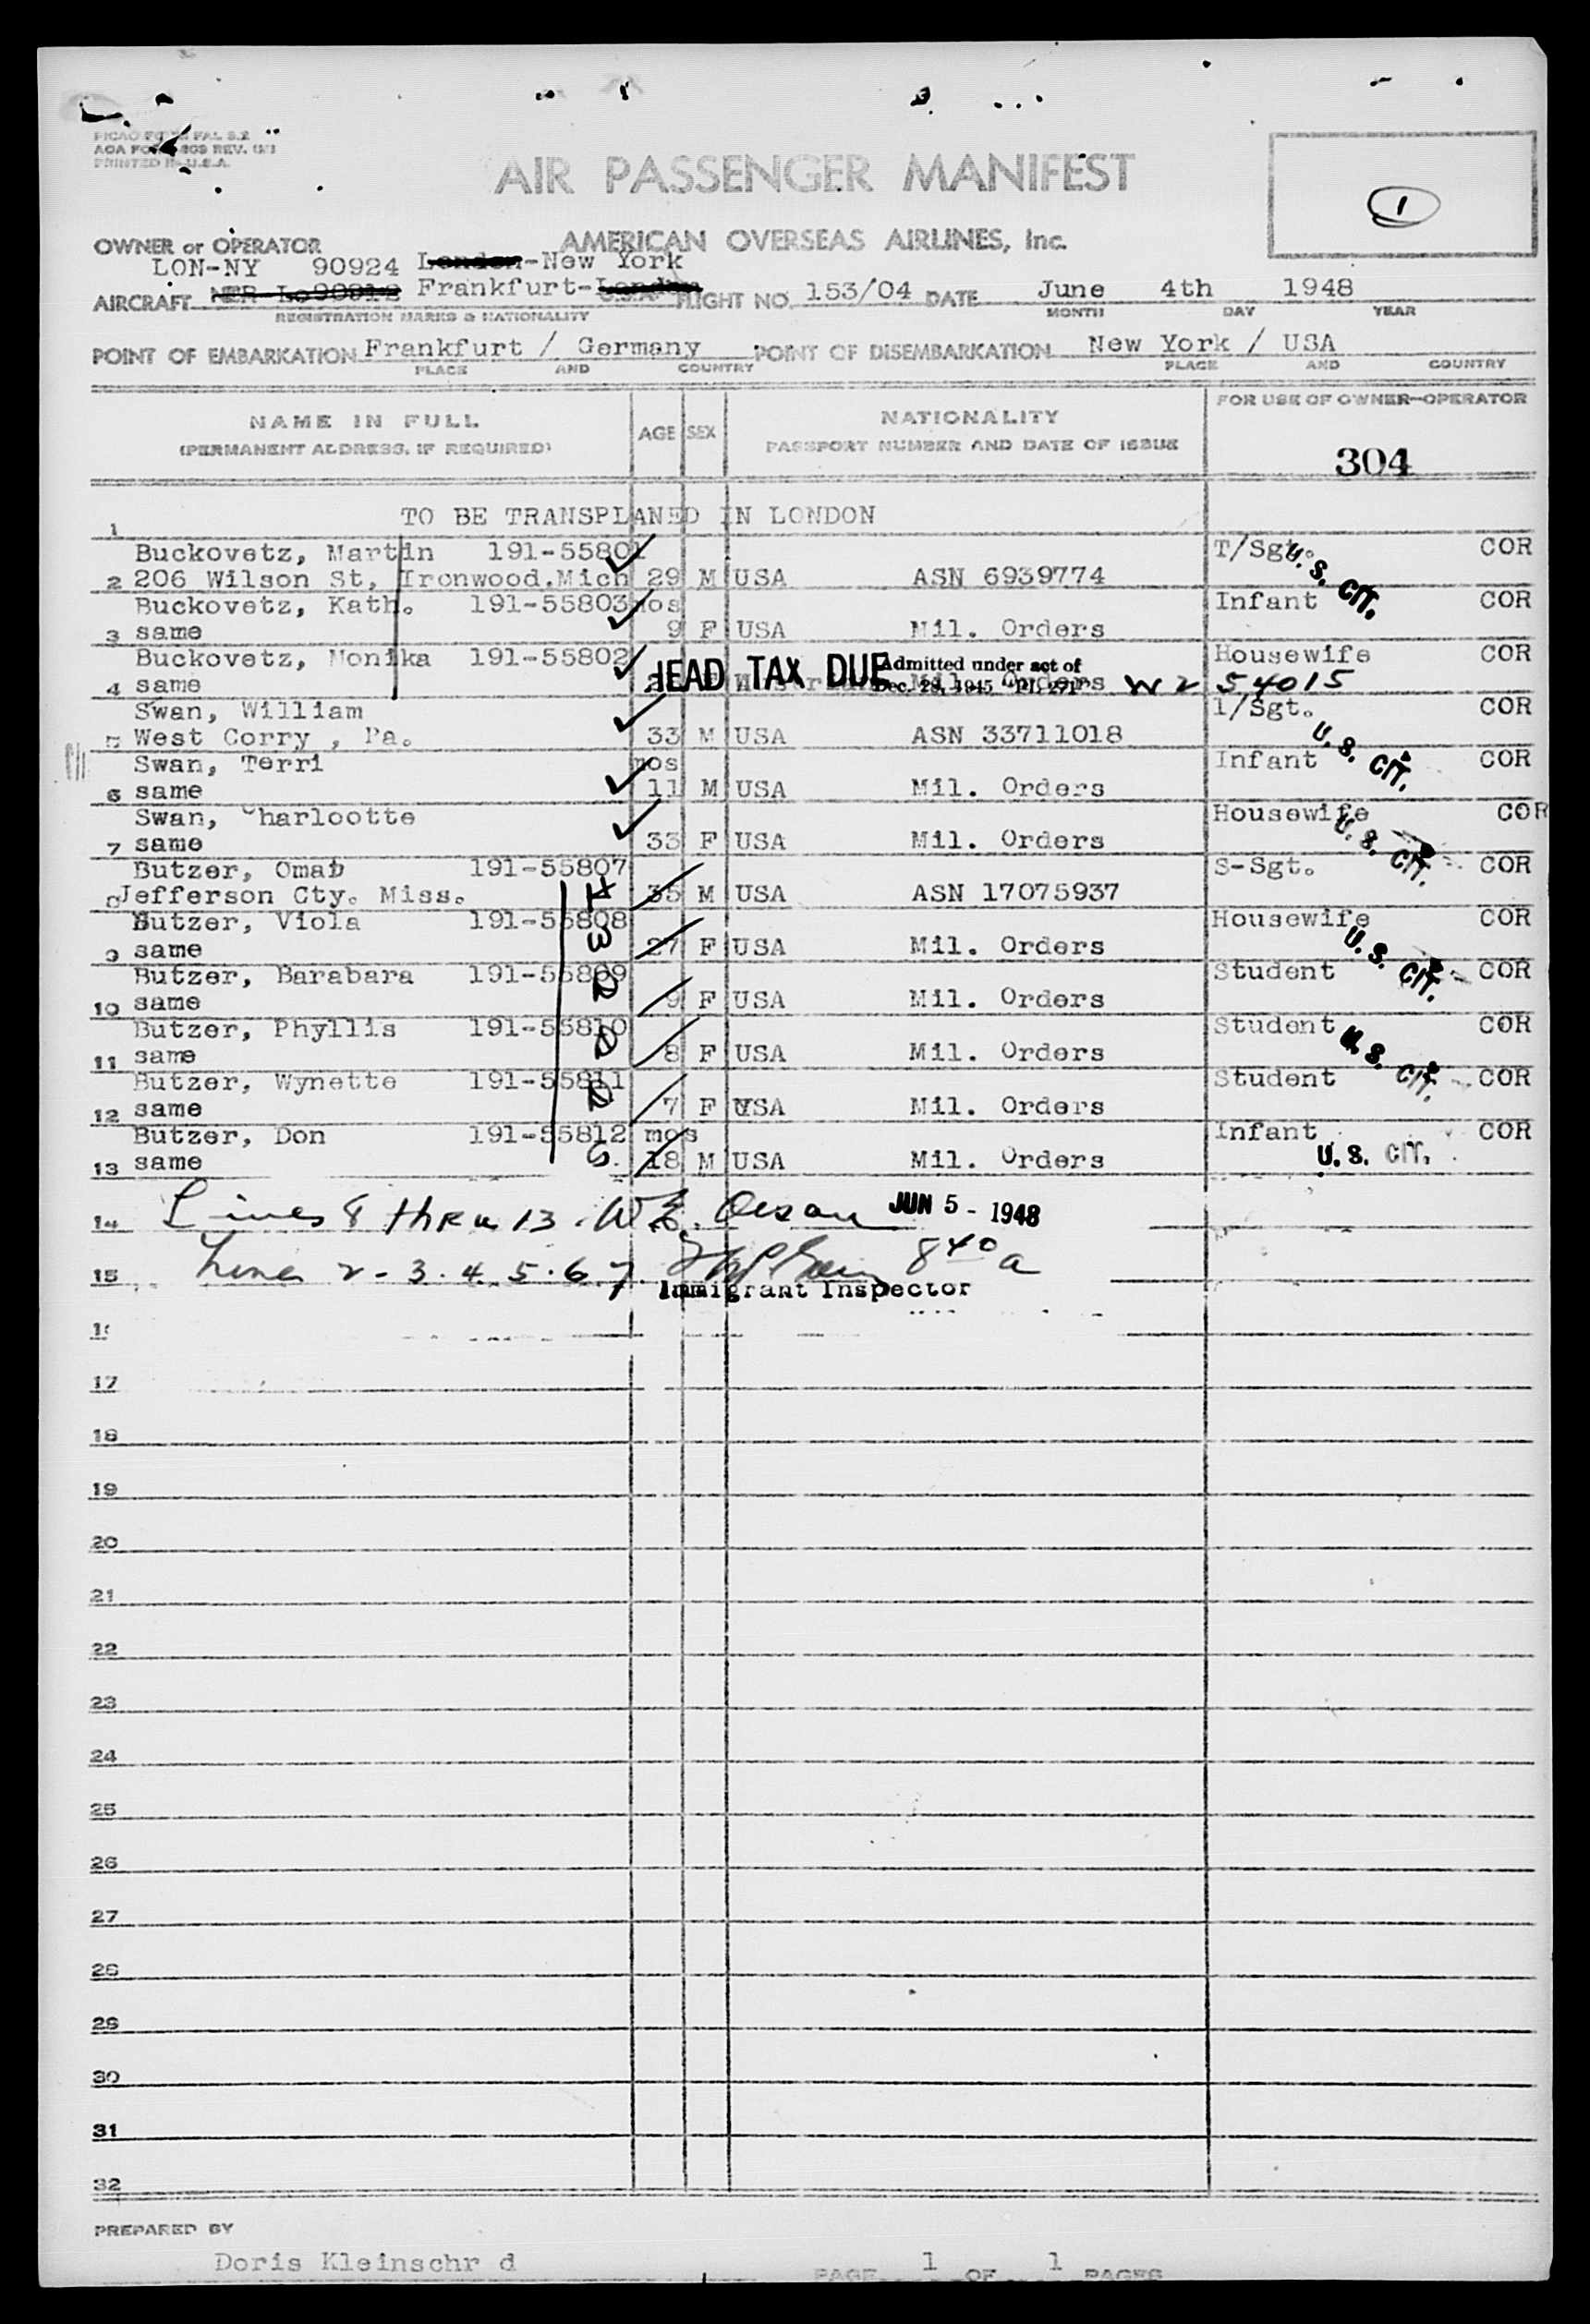 PRINTED IN U.S.A.
1
AIR PASSENGER MANIFEST
OWNER or OPERATOR AMERICAN OVERSEAS AIRLINES, Inc.
LON-NY 90924 London-New York
AIRCRAFT Frankfurt-London FLIGHT NO. 153/04 DATE June 4th 1948
REGISTRATION MARKS & NATIONALITY MONTH DAY YEAR
POINT OF EMBARKATION Frankfurt / Germany POINT OF DISEMBARKATION New York / USA
PLACE AND COUNTRY PLACE AND COUNTRY
NAME IN FULL AGE SEX NATIONALITY FOR USE OF OWNER-OPERATOR
(PERMANENT ADDRESS, IF REQUIRED) PASSPORT NUMBER AND DATE OF ISSUE
304
1 TO BE TRANSPLANED IN LONDON
Buckovetz, Martin 191-55801 T/Sgt. COR
2 206 Wilson St, Ironwood.Mich 29 M USA ASN 6939774 U. S. CIT.
Buckovetz, Kath. 191-55803 mos Infant COR
3 same 9 F USA Mil. Orders
Buckovetz, Monika 191-55802 HEAD TAX DUE Admitted under act of Housewife COR
4 same Dec. 28, 1945 "PL 271" Mil. Orders W2 54015
Swan, William 1/Sgt. COR
5 West Corry , Pa. 33 M USA ASN 33711018 U. S. CIT.
Swan, Terri mos Infant COR
6 same 11 M USA Mil. Orders
Swan, Charlootte Housewife COR
7 same 33 F USA Mil. Orders U. S. CIT.
Butzer, Omab 191-55807 S-Sgt. COR
8 Jefferson Cty. Miss. 35 M USA ASN 17075937
Butzer, Viola 191-55808 Housewife COR
9 same 27 F USA Mil. Orders U. S. CIT.
Butzer, Barabara 191-55809 Student COR
10 same 9 F USA Mil. Orders
Butzer, Phyllis 191-55810 Student COR
11 same 8 F USA Mil. Orders U. S. CIT.
Butzer, Wynette 191-55811 Student COR
12 same 7 F USA Mil. Orders
Butzer, Don 191-55812 mos Infant COR
13 same 18 M USA Mil. Orders U. S. CIT.
14 Lines 8 thru 13. JUN 5 - 1948
15 Lines 2-3.4.5.6.7. 8 40 a
Immigrant Inspector
17
18
19
20
21
22
23
24
25
26
27
28
29
30
31
32
PREPARED BY
Doris Kleinschr d PAGE 1 OF 1 PAGES